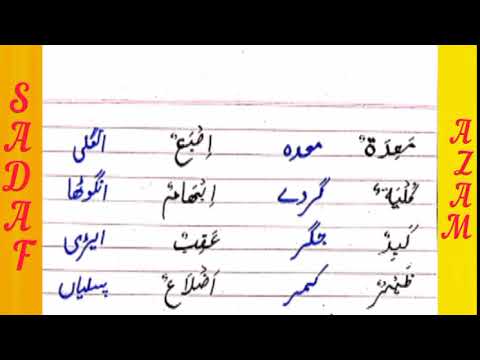 SADAF
مَعِدَةٌ معدہ اِصْبَعٌ انگلی
كُلْيَاتٌ گردے اِبْهَامٌ انگوٹھا
كَبِدٌ جگر عَقِبٌ ایڑی
ظَهْرٌ کمر اَضْلَاعٌ پسلیاں
AZAM